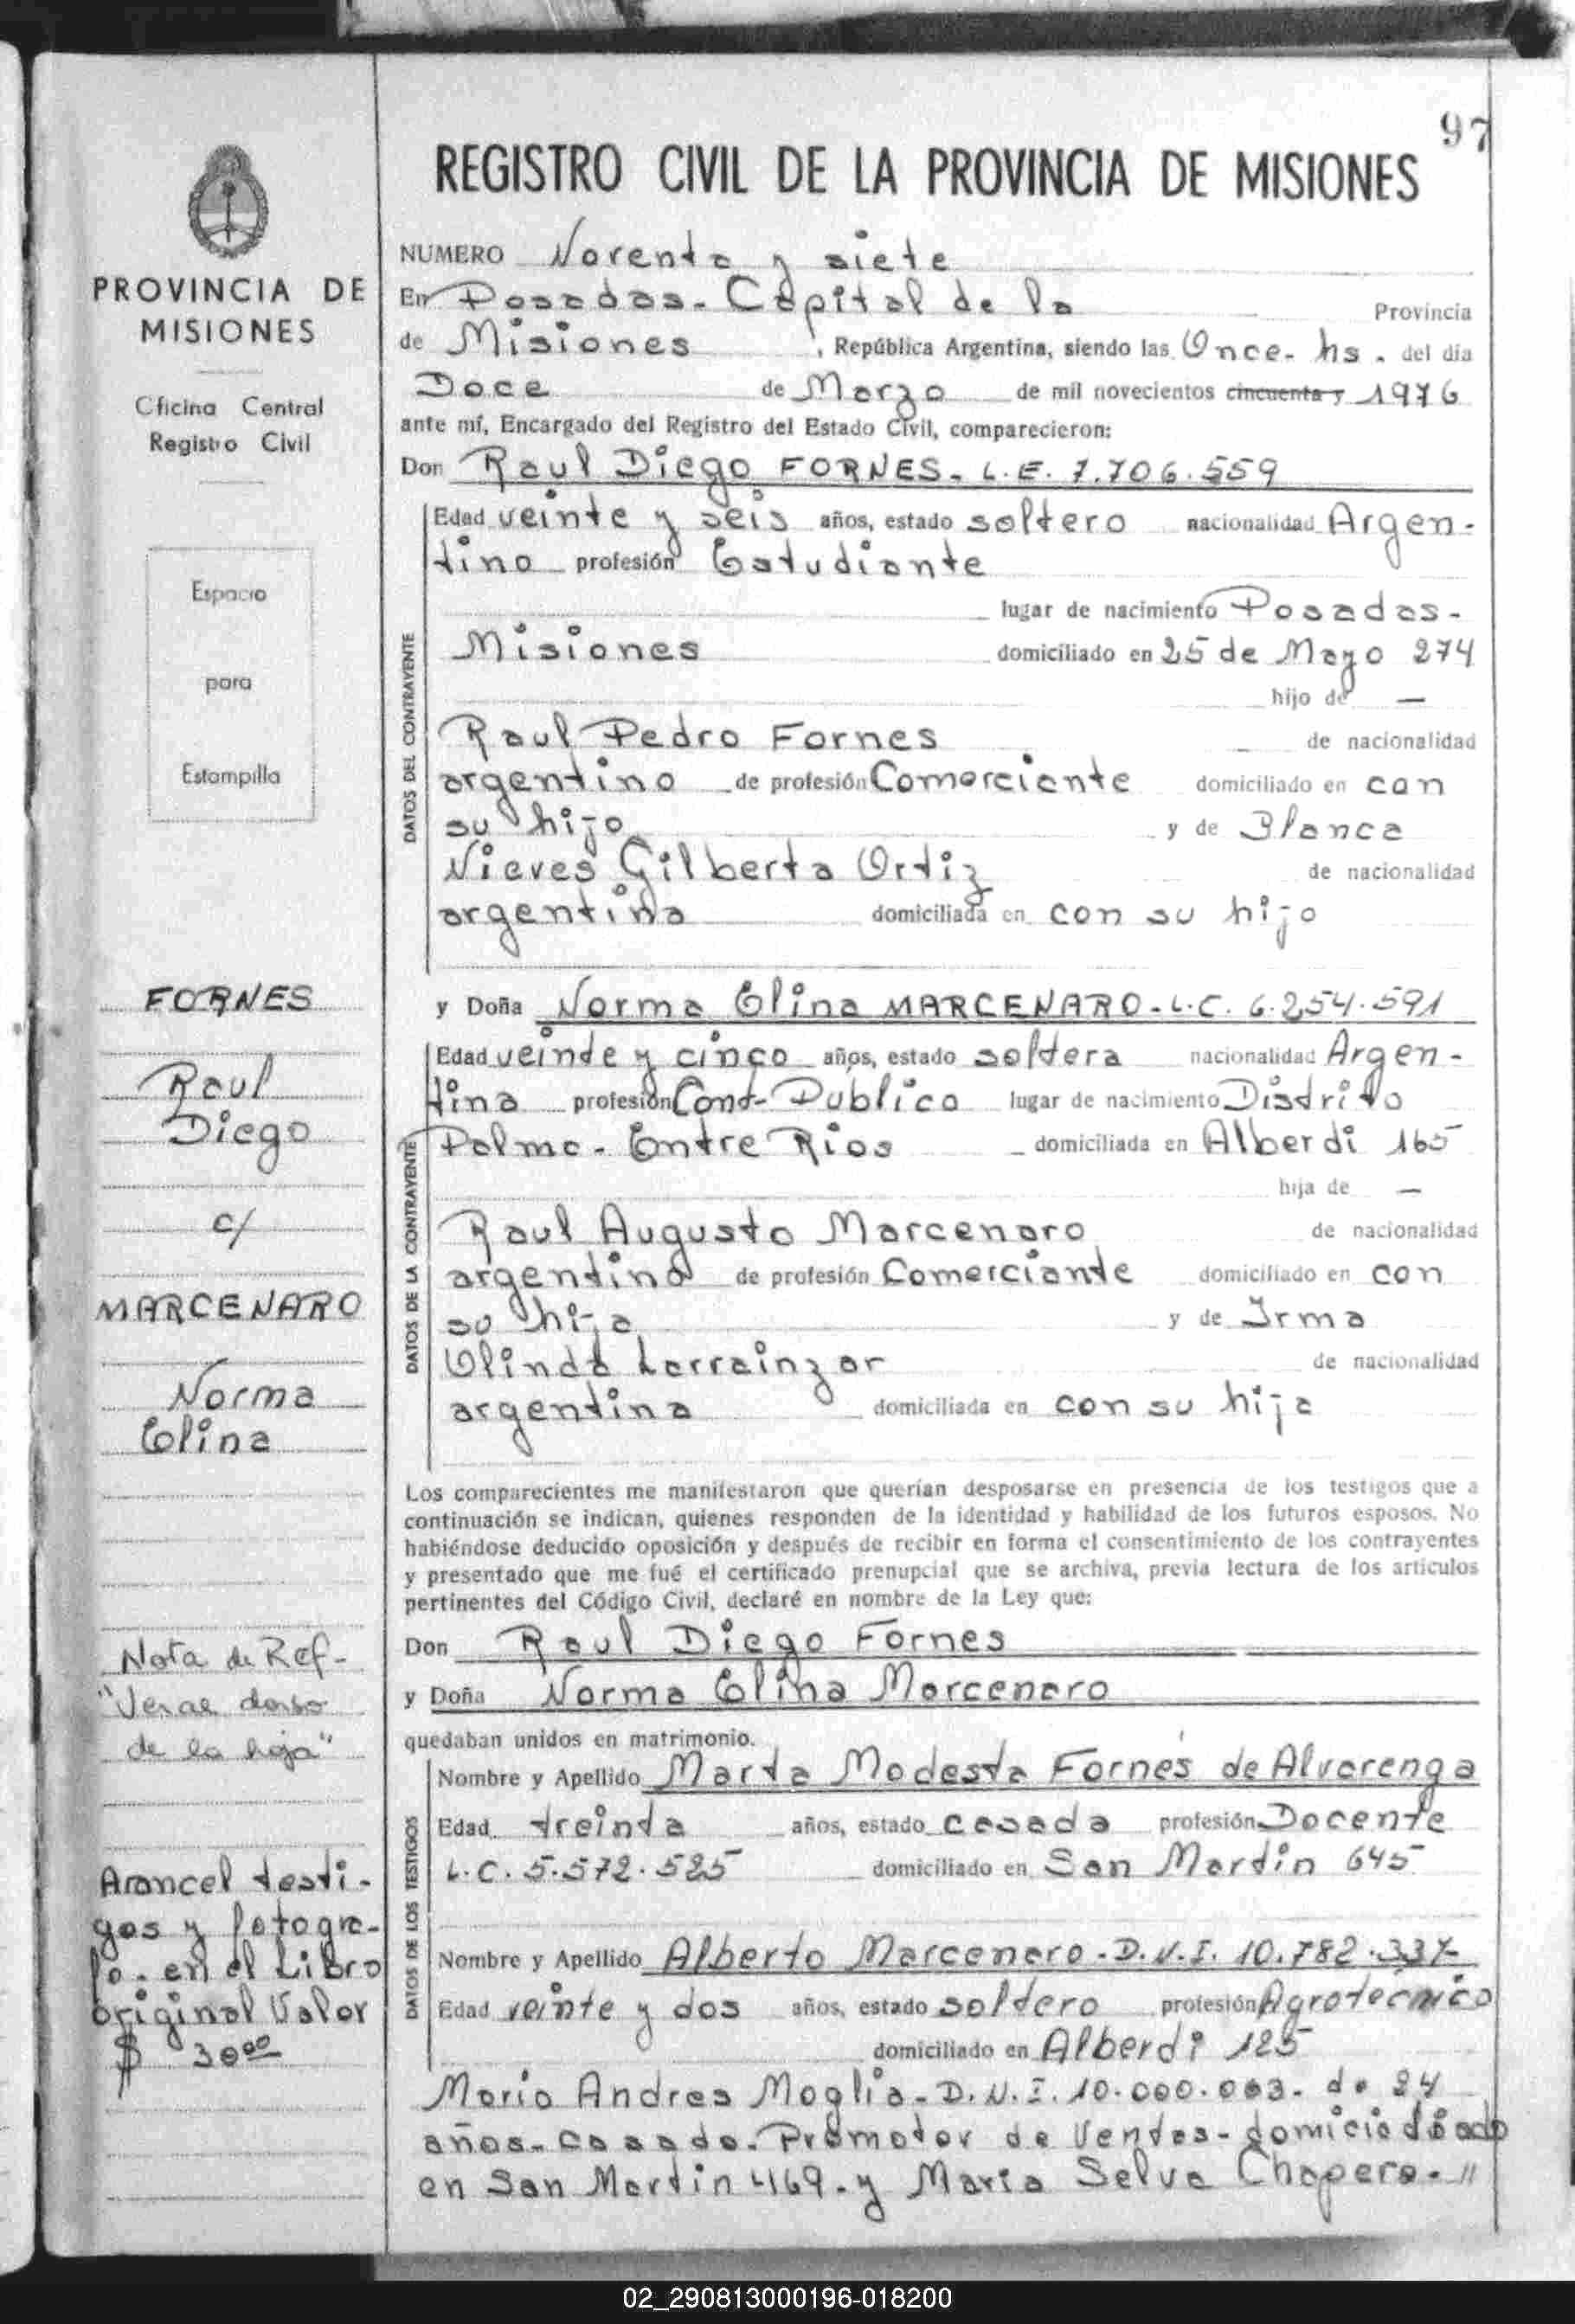 97
REGISTRO CIVIL DE LA PROVINCIA DE MISIONES
PROVINCIA DE
MISIONES
Oficina Central
Registro Civil
Espacio
para
Estampilla
FORNES
Raul
Diego
c/
MARCENARO
Norma
Elina
Nota de Ref-
"Verae dorso
de la hoja"
Arancel testi-
gos y fotogra-
fo. en el Libro
original Valor
$ 3000
NUMERO Noventa y siete
En Posadas - Capital de la Provincia
de Misiones, República Argentina, siendo las Once - hs. del día
Doce de Marzo de mil novecientos cincuenta y 1976
ante mí, Encargado del Registro del Estado Civil, comparecieron:
Don Raul Diego FORNES - L.E. 7.706.559
DATOS DEL CONTRAYENTE
Edad veinte y seis años, estado soltero nacionalidad Argen-
tino profesión Estudiante
lugar de nacimiento Posadas -
Misiones domiciliado en 25 de Mayo 274
hijo de —
Raul Pedro Fornes de nacionalidad
argentino de profesión Comerciante domiciliado en con
su hijo y de Blanca
Nieves Gilberta Ortiz de nacionalidad
argentina domiciliada en con su hijo
y Doña Norma Elina MARCENARO - L.C. 6.254.591
DATOS DE LA CONTRAYENTE
Edad veinte y cinco años, estado soltera nacionalidad Argen-
tina profesión Cont- Publico lugar de nacimiento Distrito
Palma - Entre Rios domiciliada en Alberdi 165
hija de —
Raul Augusto Marcenaro de nacionalidad
argentino de profesión Comerciante domiciliado en con
su hija y de Irma
Olinda Larrainzar de nacionalidad
argentina domiciliada en con su hija
Los comparecientes me manifestaron que querían desposarse en presencia de los testigos que a
continuación se indican, quienes responden de la identidad y habilidad de los futuros esposos. No
habiéndose deducido oposición y después de recibir en forma el consentimiento de los contrayentes
y presentado que me fué el certificado prenupcial que se archiva, previa lectura de los artículos
pertinentes del Código Civil, declaré en nombre de la Ley que:
Don Raul Diego Fornes
y Doña Norma Elina Marcenaro
quedaban unidos en matrimonio.
DATOS DE LOS TESTIGOS
Nombre y Apellido Marta Modesta Fornés de Alvarenga
Edad treinta años, estado casada profesión Docente
L.C. 5.572.525 domiciliado en San Martin 645
Nombre y Apellido Alberto Marcenaro - D.N.I. 10.782.337-
Edad veinte y dos años, estado soltero profesión Agrotécnico
domiciliado en Alberdi 125
Mario Andres Moglia - D.N.I. 10.000.063 - de 24
años - casado - Promotor de Ventas - domiciado
en San Martin 469 - y Maria Selva Chapero - "
02_290813000196-018200